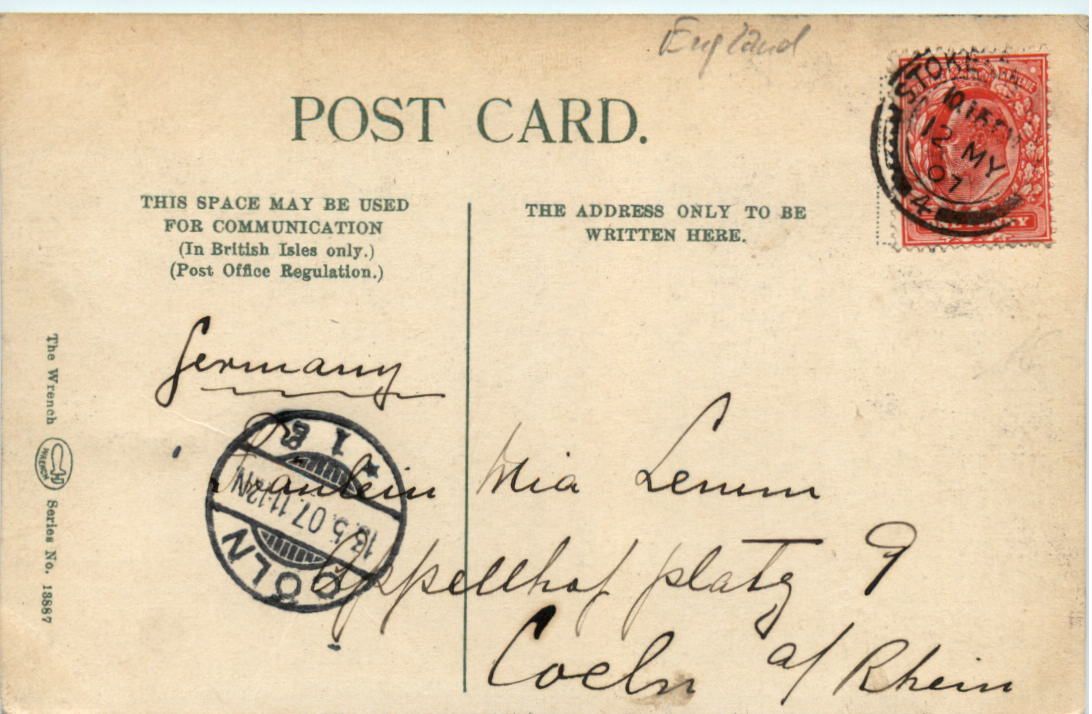 England
POST CARD.
THIS SPACE MAY BE USED
FOR COMMUNICATION
(In British Isles only.)
(Post Office Regulation.)
THE ADDRESS ONLY TO BE
WRITTEN HERE.
STOKE
12 MY
07
4
ONE PENNY
Germany
Fräulein Mia Lemm
Appellhof platz 9
Coeln a/ Rhein
1 g
13.5.07.11-12N
CÖLN
The Wrench
WRENCH
Series No. 13887